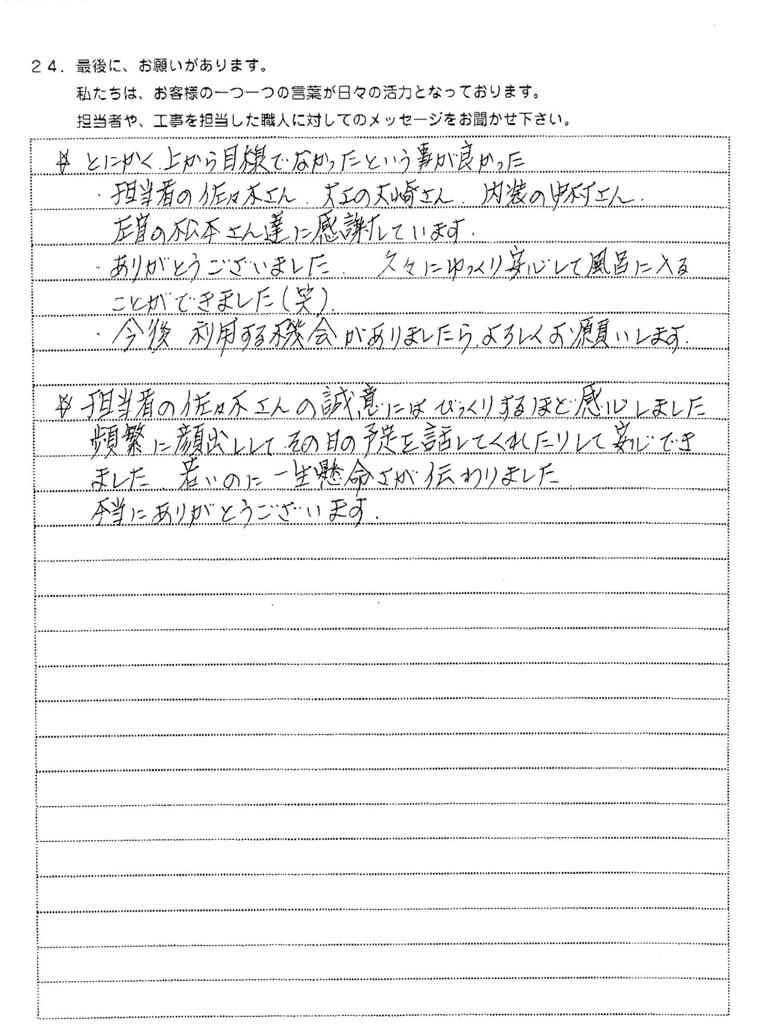 24．最後に、お願いがあります。
私たちは、お客様の一つ一つの言葉が日々の活力となっております。
担当者や、工事を担当した職人に対してのメッセージをお聞かせ下さい。
☆ とにかく、上から目線でなかったという事が良かった
・担当者の佐々木さん、大工の大崎さん、内装の中村さん、
左官の松本さん達に感謝しています。
・ありがとうございました。 久々にゆっくり安心して風呂に入る
ことができました（笑）
・今後 利用する機会がありましたら、よろしくお願いします。
☆ 担当者の佐々木さんの誠意にはびっくりするほど感心しました
頻繁に顔出しして、その日の予定を話してくれたりして安心でき
ました。若いのに一生懸命さが伝わりました
本当にありがとうございます。